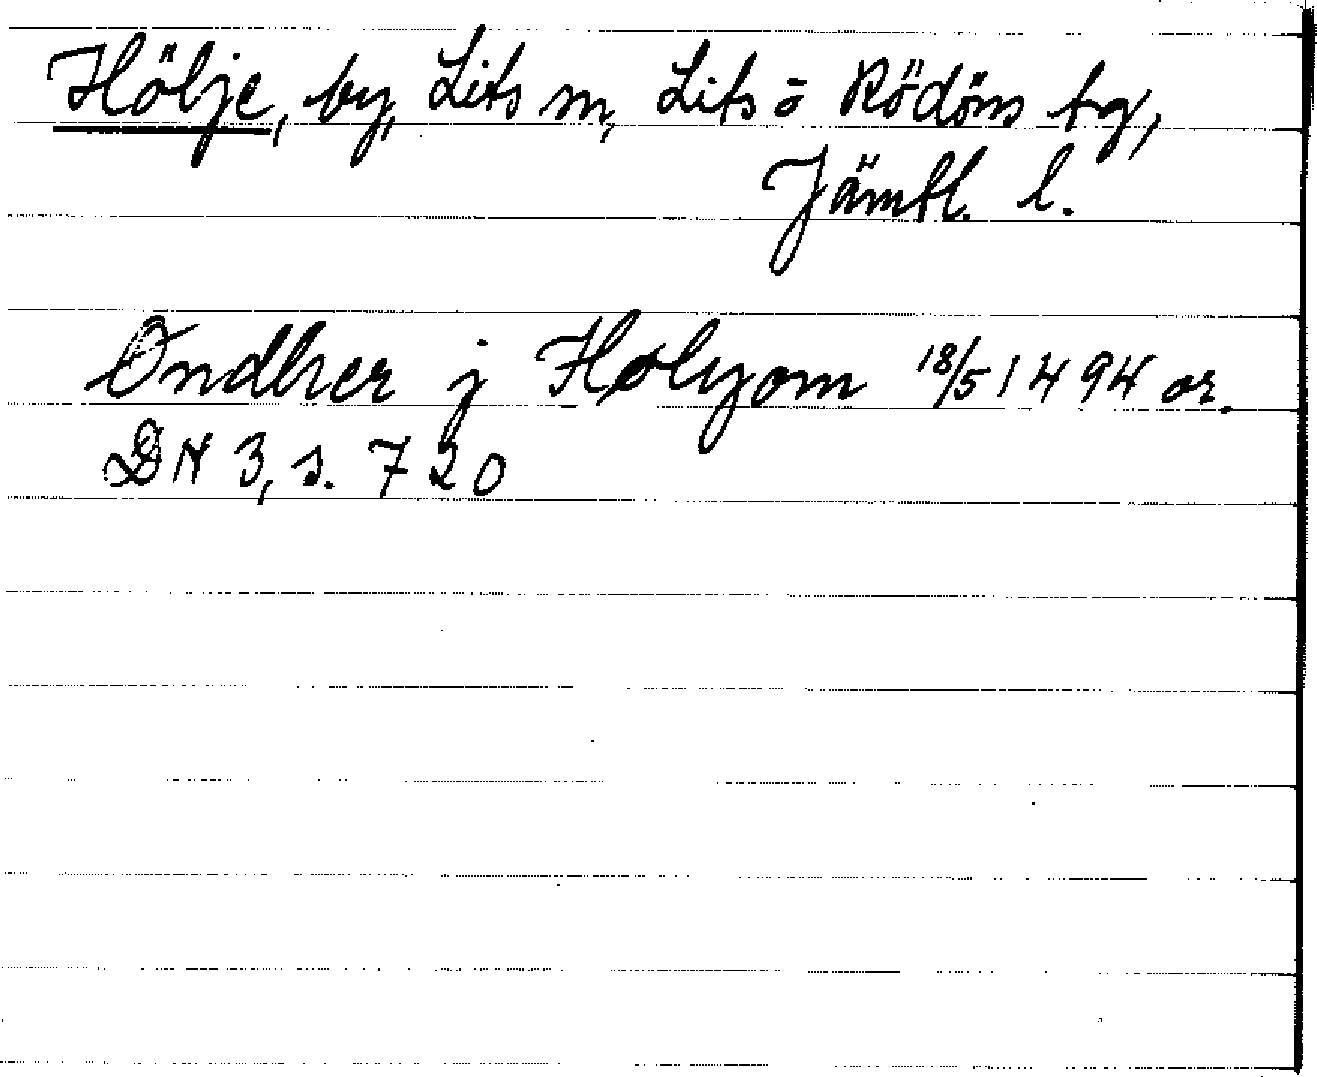 Hölje, by, Lits sn, Lits o Rödöns tg,
Jämtl. l.
Øndher j Hølyom 18/5 1494 or.
DN 3, s. 720